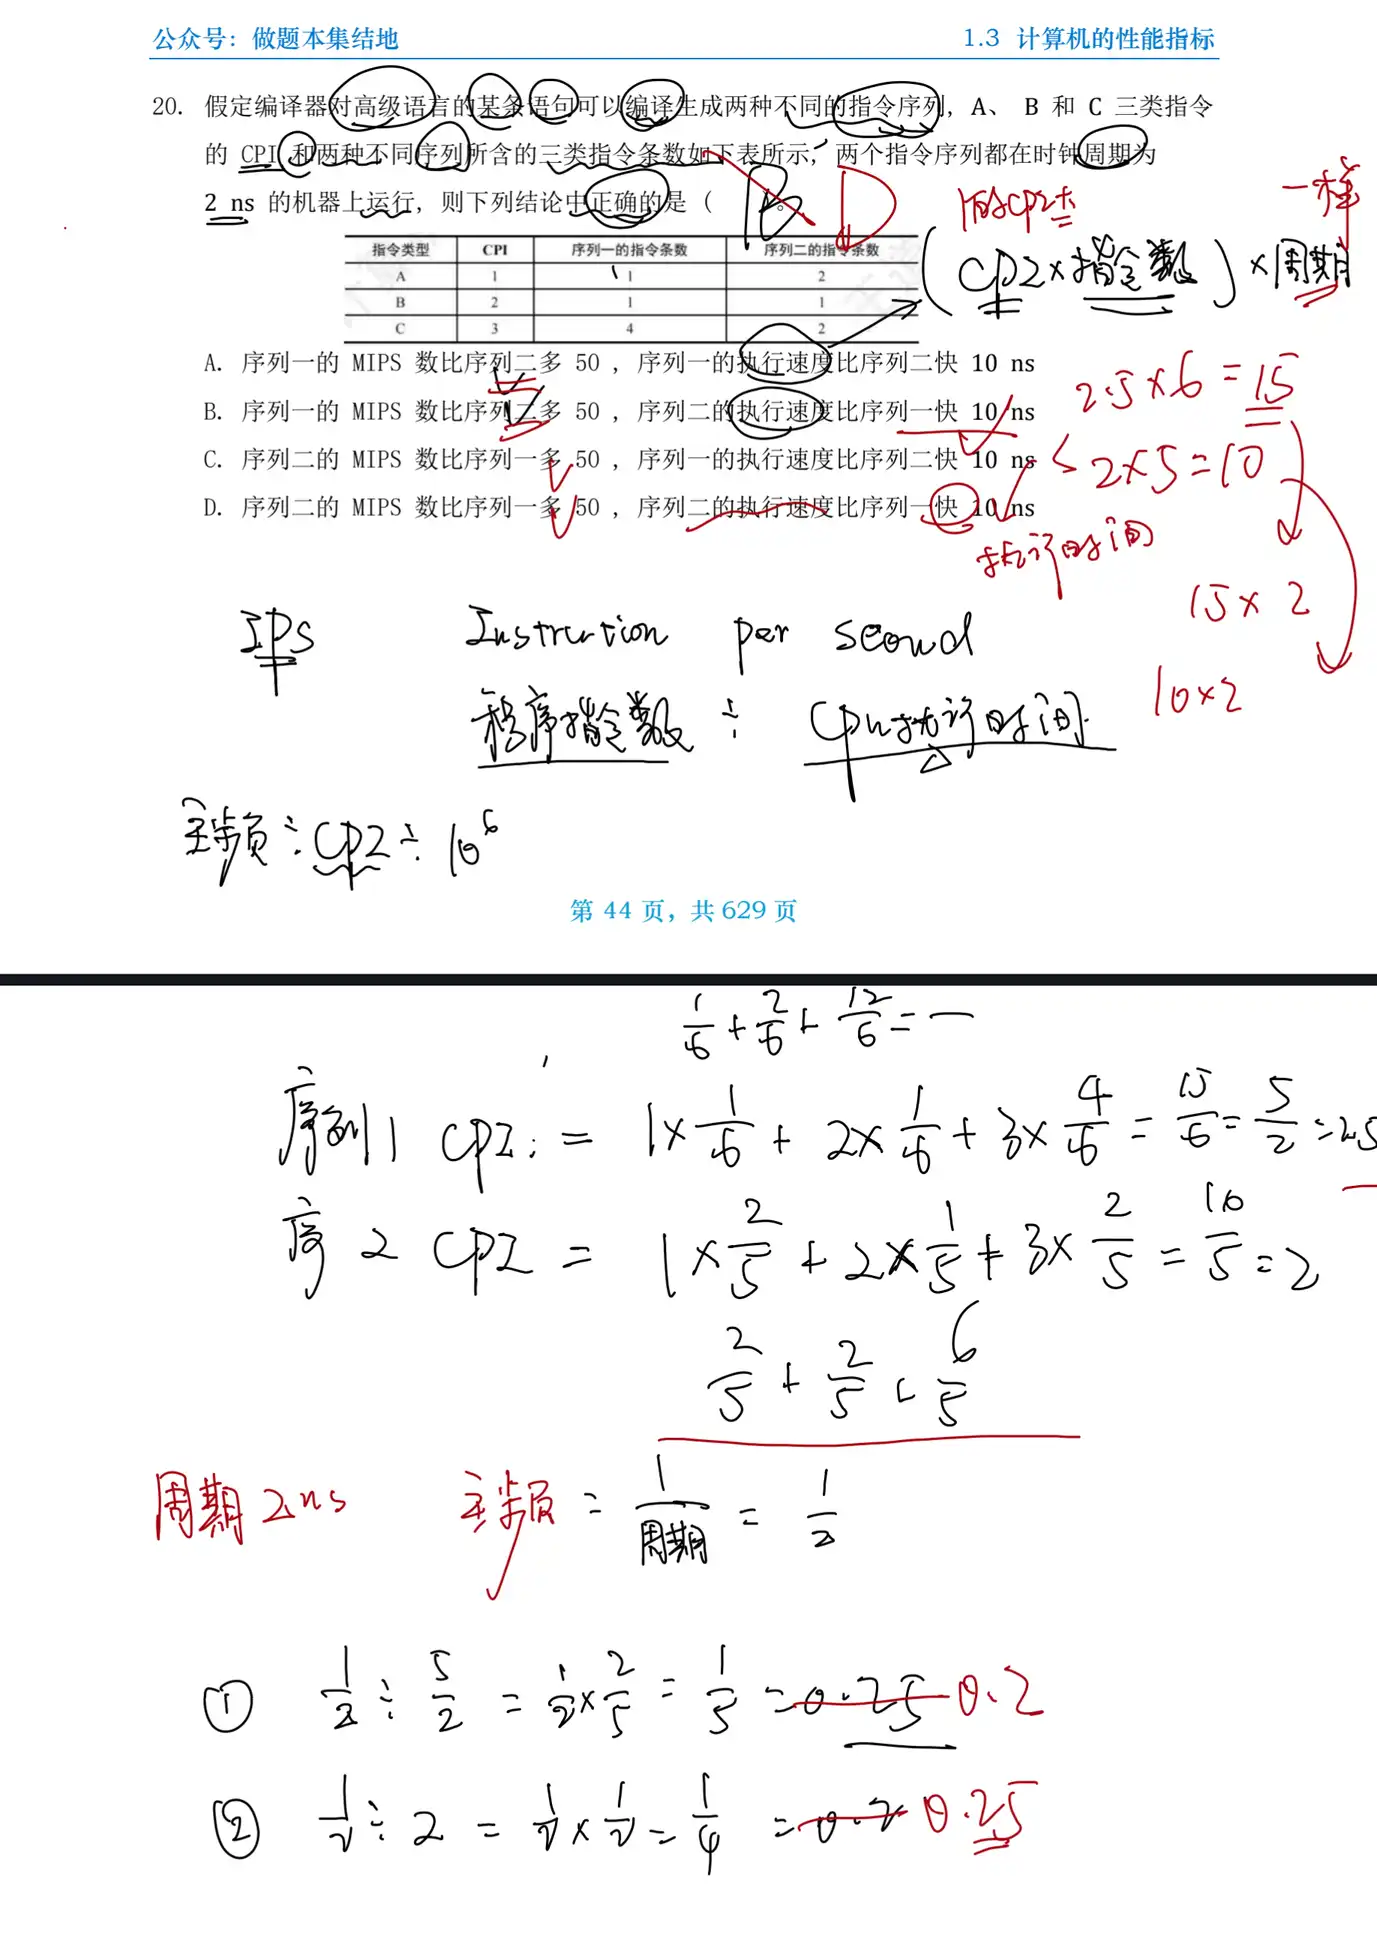 公众号：做题本集结地 1.3 计算机的性能指标
20. 假定编译器对高级语言的某条语句可以编译生成两种不同的指令序列，A、 B 和 C 三类指令
的 CPI 和两种不同序列所含的三类指令条数如下表所示，两个指令序列都在时钟周期为
2 ns 的机器上运行，则下列结论中正确的是（ ）。
B D
一样
指令类型 CPI 序列一的指令条数 序列二的指令条数
A 1 1 2
B 2 1 1
C 3 4 2
(CPI×指令数)×周期
A. 序列一的 MIPS 数比序列二多 50 ，序列一的执行速度比序列二快 10 ns
B. 序列一的 MIPS 数比序列二多 50 ，序列二的执行速度比序列一快 10 ns
C. 序列二的 MIPS 数比序列一多 50 ，序列一的执行速度比序列二快 10 ns
D. 序列二的 MIPS 数比序列一多 50 ，序列二的执行速度比序列一快 10 ns
2.5×6=15
2×5=10
执行时间
15×2
10×2
IPS Instruction per second
程序指令数 ÷ CPU执行时间
主频÷CPI÷10⁶
第 44 页，共 629 页
1/6+2/6+12/6=
序列1 CPI: = 1×1/6+2×1/6+3×4/6=15/6=5/2=2.5
序2 CPI = 1×2/5+2×1/5+3×2/5=10/5=2
2/5+2/5+6/5
周期2ns 主频=1/周期=1/2
① 1/2÷5/2=1/2×2/5=1/5=0.25 0.2
② 1/2÷2=1/2×1/2=1/4=0.2 0.25